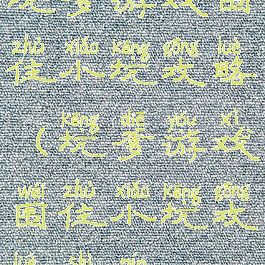 坑爹游戏围
zhù xiǎo kēng gōng lüè
住小坑攻略
kēng diē yóu xì
（坑爹游戏
wéi zhù xiǎo kēng gōng
围住小坑攻